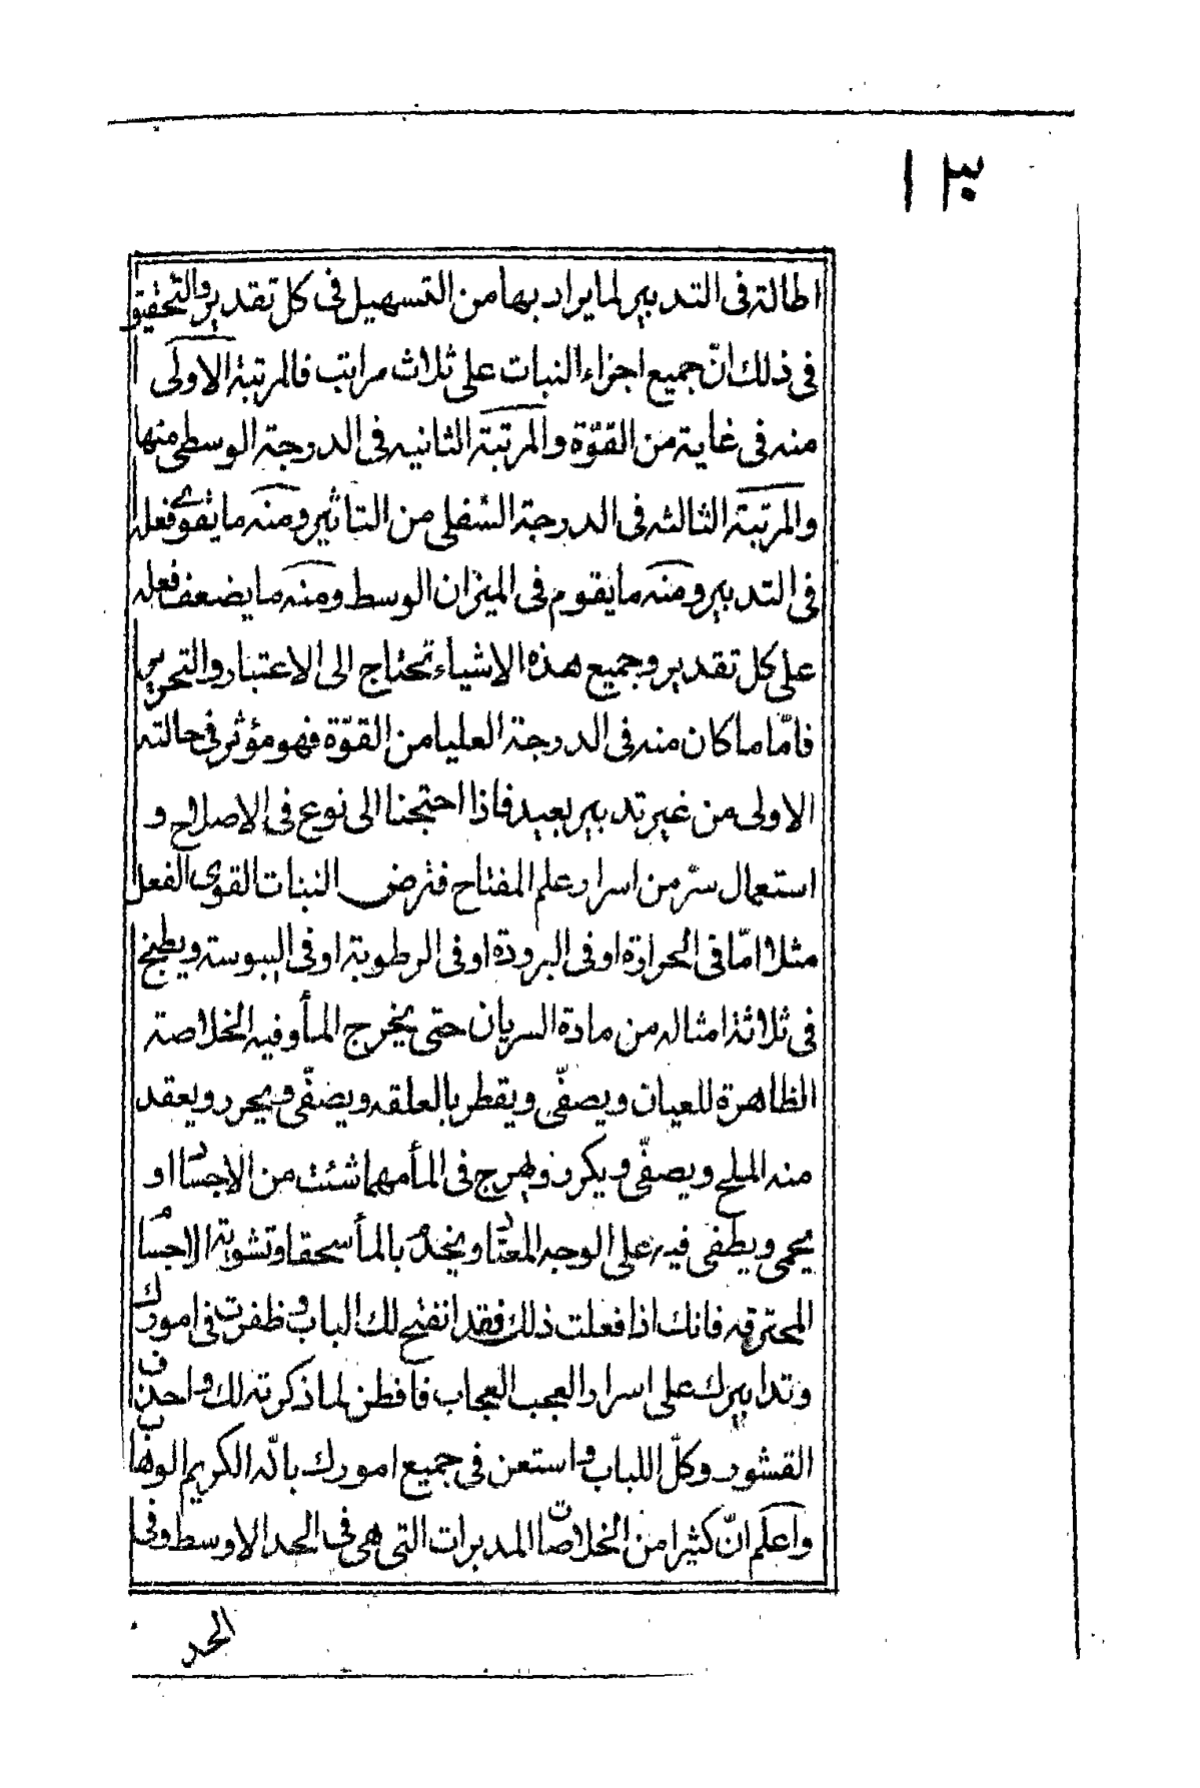 ١٣
اطالة فى التدبير لما يراد بها من التسهيل فى كل تقدير والتحقيق
فى ذلك انّ جميع اجزاء النبات على ثلاث مراتب فالمرتبة الاولى
منه فى غاية من القوّة والمرتبة الثانيه فى الدرجة الوسطى منها
والمرتبة الثالثه فى الدرجة السّفلى من التاثير ومنه ما يقوى فعله
فى التدبير ومنه ما يقوم فى الميزان الوسط ومنه ما يضعف فعله
على كل تقدير وجميع هذه الاشياء تحتاج الى الاعتبار والتحرير
فامّا ما كان منه فى الدرجة العليا من القوّة فهو مؤثر فى حالته
الاولى من غير تدبير بعيد فاذا احتجنا الى نوع فى الاصلاح و
استعمال سرّ من اسرار علم المفتاح فترض النبات القوى الفعل
مثلا امّا فى الحرارة او فى البرودة او فى الرطوبة او فى اليبوسة ويطبخ
فى ثلاثة امثاله من مادة السريان حتى يخرج المأ وفيه الخلاصة
الظاهرة للعيان ويصفّى ويقطر بالعلقه ويصفّى ويحرر ويعقد
منه الملح ويصفّى ويكرر ويهرج فى المأ مهما شئت من الاجساد او
يحمى ويطفى فيه على الوجه المعتاد ويخدم بالمأ سحقا وتشوية الاجسام
المحترقه فانك اذا فعلت ذلك فقد انفتح لك الباب وظفرت فى امورك
وتدابيرك على اسرار العجب العجاب فافطن لما ذكرته لك واحذف
القشور وكلّ اللباب واستعن فى جميع امورك بالّه الكريم الوهّاب
واعلم انّ كثيرا من الخلاصات المدبرات التى هى فى الحد الاوسط وفى
الحد